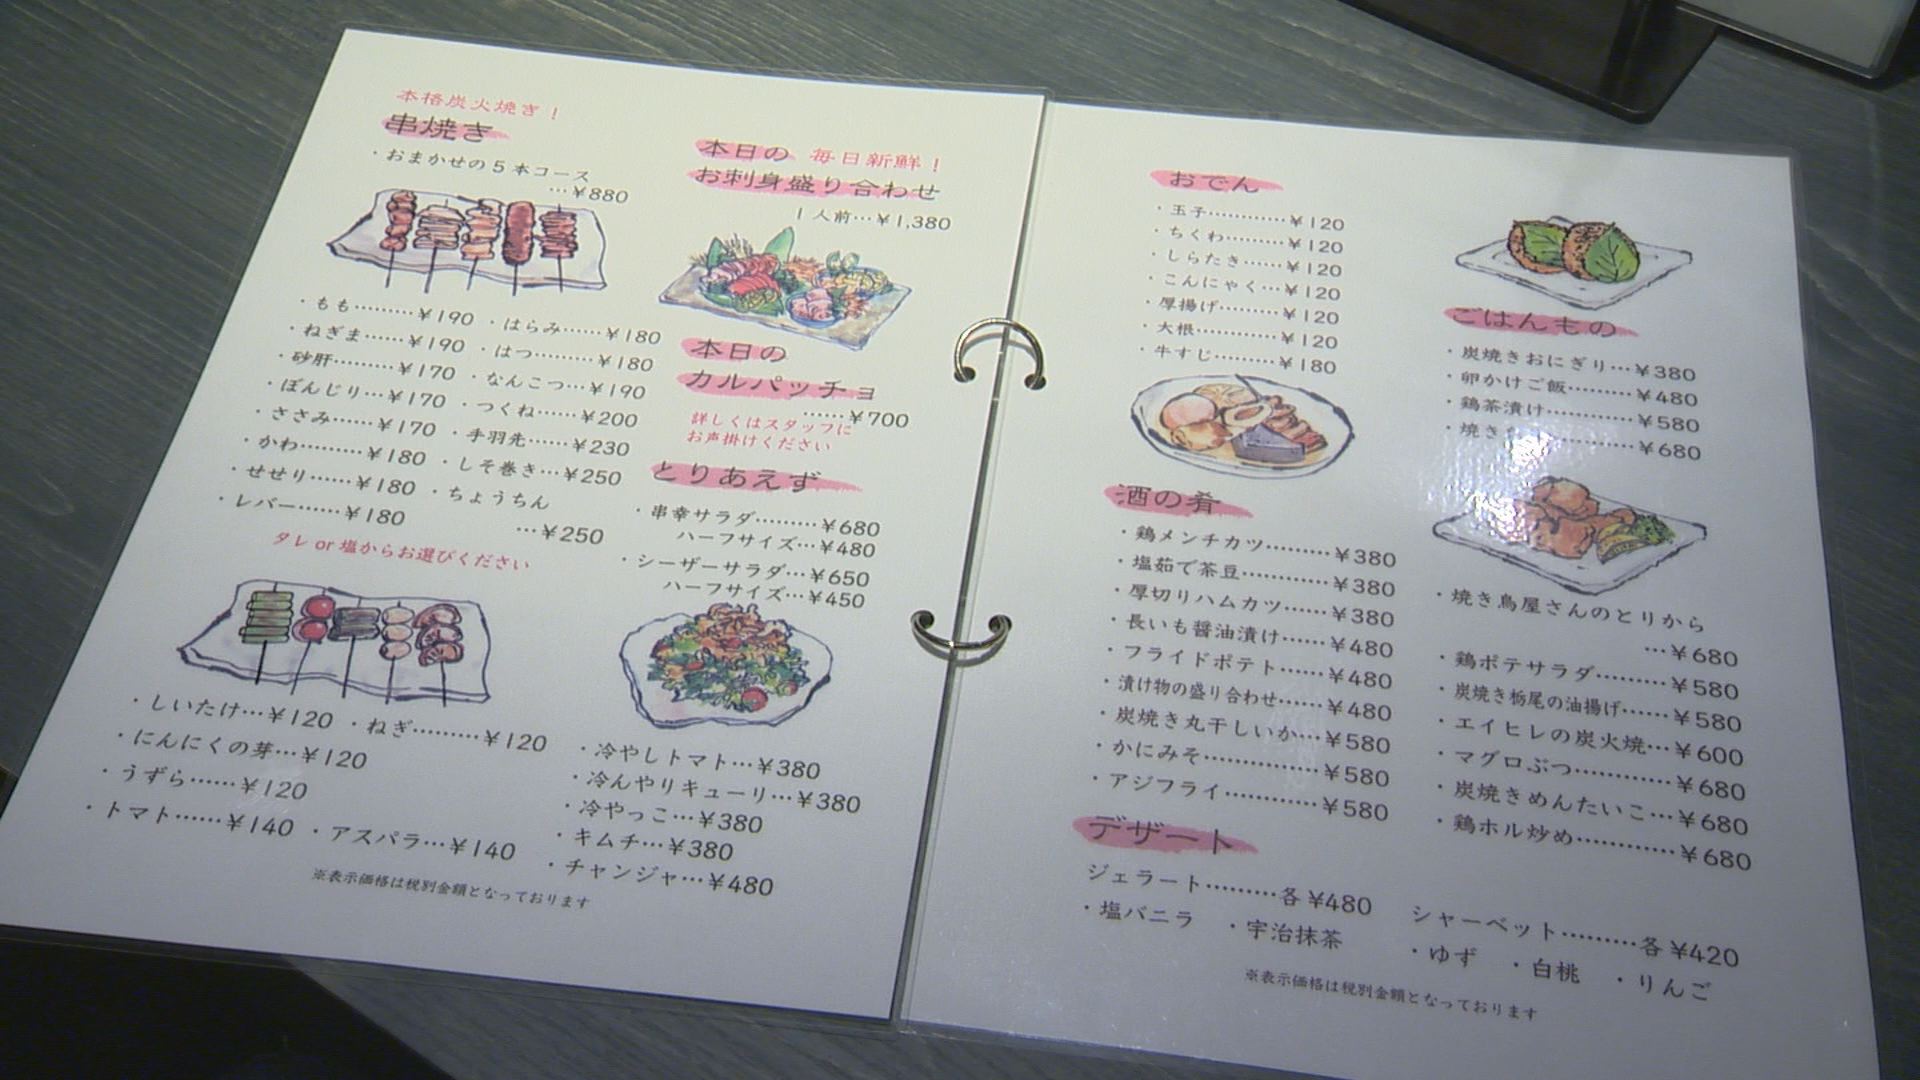 本格炭火焼き!
串焼き
・おまかせの5本コース
…¥880
・もも………¥190 ・はらみ……¥180
・ねぎま……¥190 ・はつ………¥180
・砂肝………¥170 ・なんこつ…¥190
・ぼんじり…¥170 ・つくね……¥200
・ささみ……¥170 ・手羽先……¥230
・かわ………¥180 ・しそ巻き…¥250
・せせり……¥180 ・ちょうちん
・レバー……¥180 …¥250
タレor塩からお選びください
・しいたけ…¥120 ・ねぎ………¥120
・にんにくの芽…¥120
・うずら……¥120
・トマト……¥140 ・アスパラ…¥140
※表示価格は税別金額となっております
本日の 毎日新鮮!
お刺身盛り合わせ
1人前…¥1,380
本日の
カルパッチョ
……¥700
詳しくはスタッフに
お声掛けください
とりあえず
・串幸サラダ………¥680
ハーフサイズ…¥480
・シーザーサラダ…¥650
ハーフサイズ…¥450
・冷やしトマト…¥380
・冷んやりキューリ…¥380
・冷やっこ…¥380
・キムチ…¥380
・チャンジャ…¥480
おでん
・玉子…………¥120
・ちくわ………¥120
・しらたき……¥120
・こんにゃく…¥120
・厚揚げ………¥120
・大根…………¥120
・牛すじ………¥180
酒の肴
・鶏メンチカツ………¥380
・塩茹で茶豆…………¥380
・厚切りハムカツ……¥380
・長いも醤油漬け……¥480
・フライドポテト……¥480
・漬け物の盛り合わせ……¥480
・炭焼き丸干しいか…¥580
・かにみそ……………¥580
・アジフライ…………¥580
デザート
ジェラート………各¥480
・塩バニラ ・宇治抹茶
ごはんもの
・炭焼きおにぎり…¥380
・卵かけご飯………¥480
・鶏茶漬け…………¥580
・焼き ………¥680
・焼き鳥屋さんのとりから
…¥680
・鶏ポテサラダ………¥580
・炭焼き栃尾の油揚げ……¥580
・エイヒレの炭火焼…¥600
・マグロぶつ…………¥680
・炭焼きめんたいこ…¥680
・鶏ホル炒め…………¥680
シャーベット………各¥420
・ゆず ・白桃 ・りんご
※表示価格は税別金額となっております